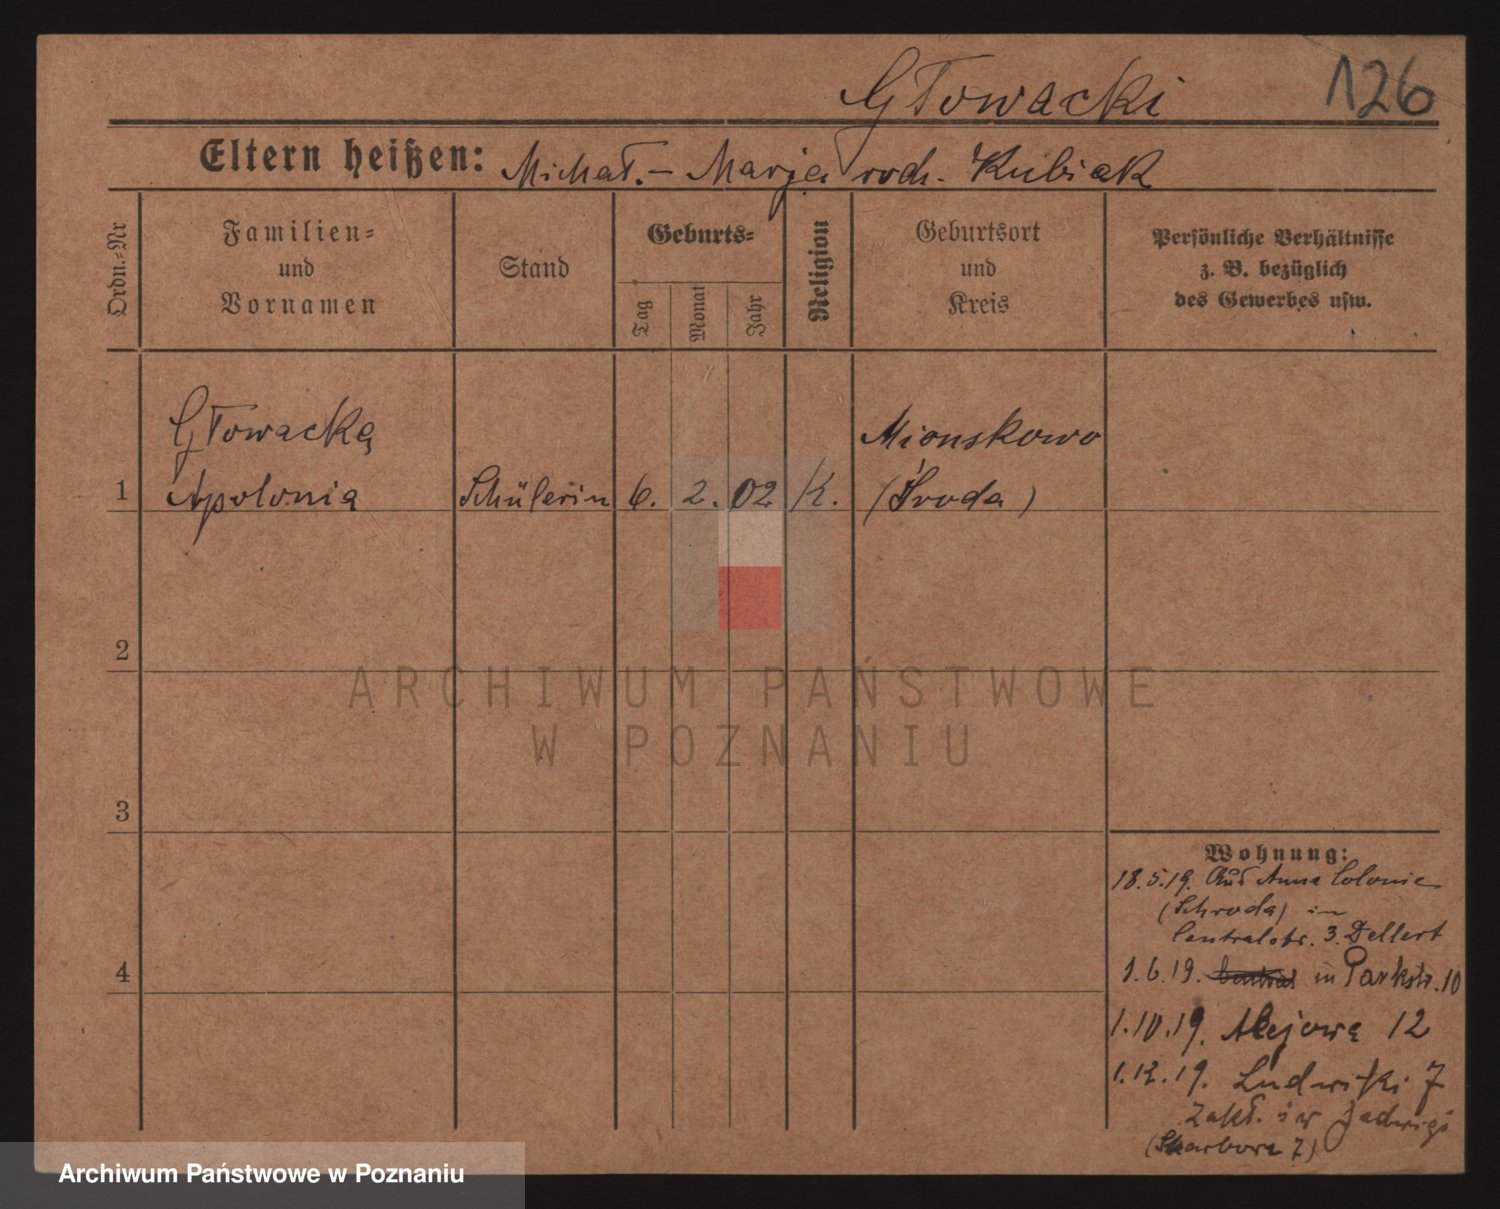 Głowacki
126
Eltern heißen: Michał. – Marja rodz. Kubiak
Ordn.-Nr
Familien=
und
Vornamen
Stand
Geburts=
Tag
Monat
Jahr
Religion
Geburtsort
und
Kreis
Persönliche Verhältnisse
z. B. bezüglich
des Gewerbes usw.
Głowacka Mionskowo
1 Apolonia Schülerin 6. 2. 02 K. (Środa)
2
3
4
Wohnung:
18.5.19. Aus Anna Colonie
(Schroda) in
Centralstr. 3. Dellert
1.6.19. in Parkstr. 10
1.10.19. Alejowa 12
1.12.19. Ludwiki 7
Zakł. św Jadwigi
(Skarbowa 7)
ARCHIWUM PAŃSTWOWE
W POZNANIU
Archiwum Państwowe w Poznaniu